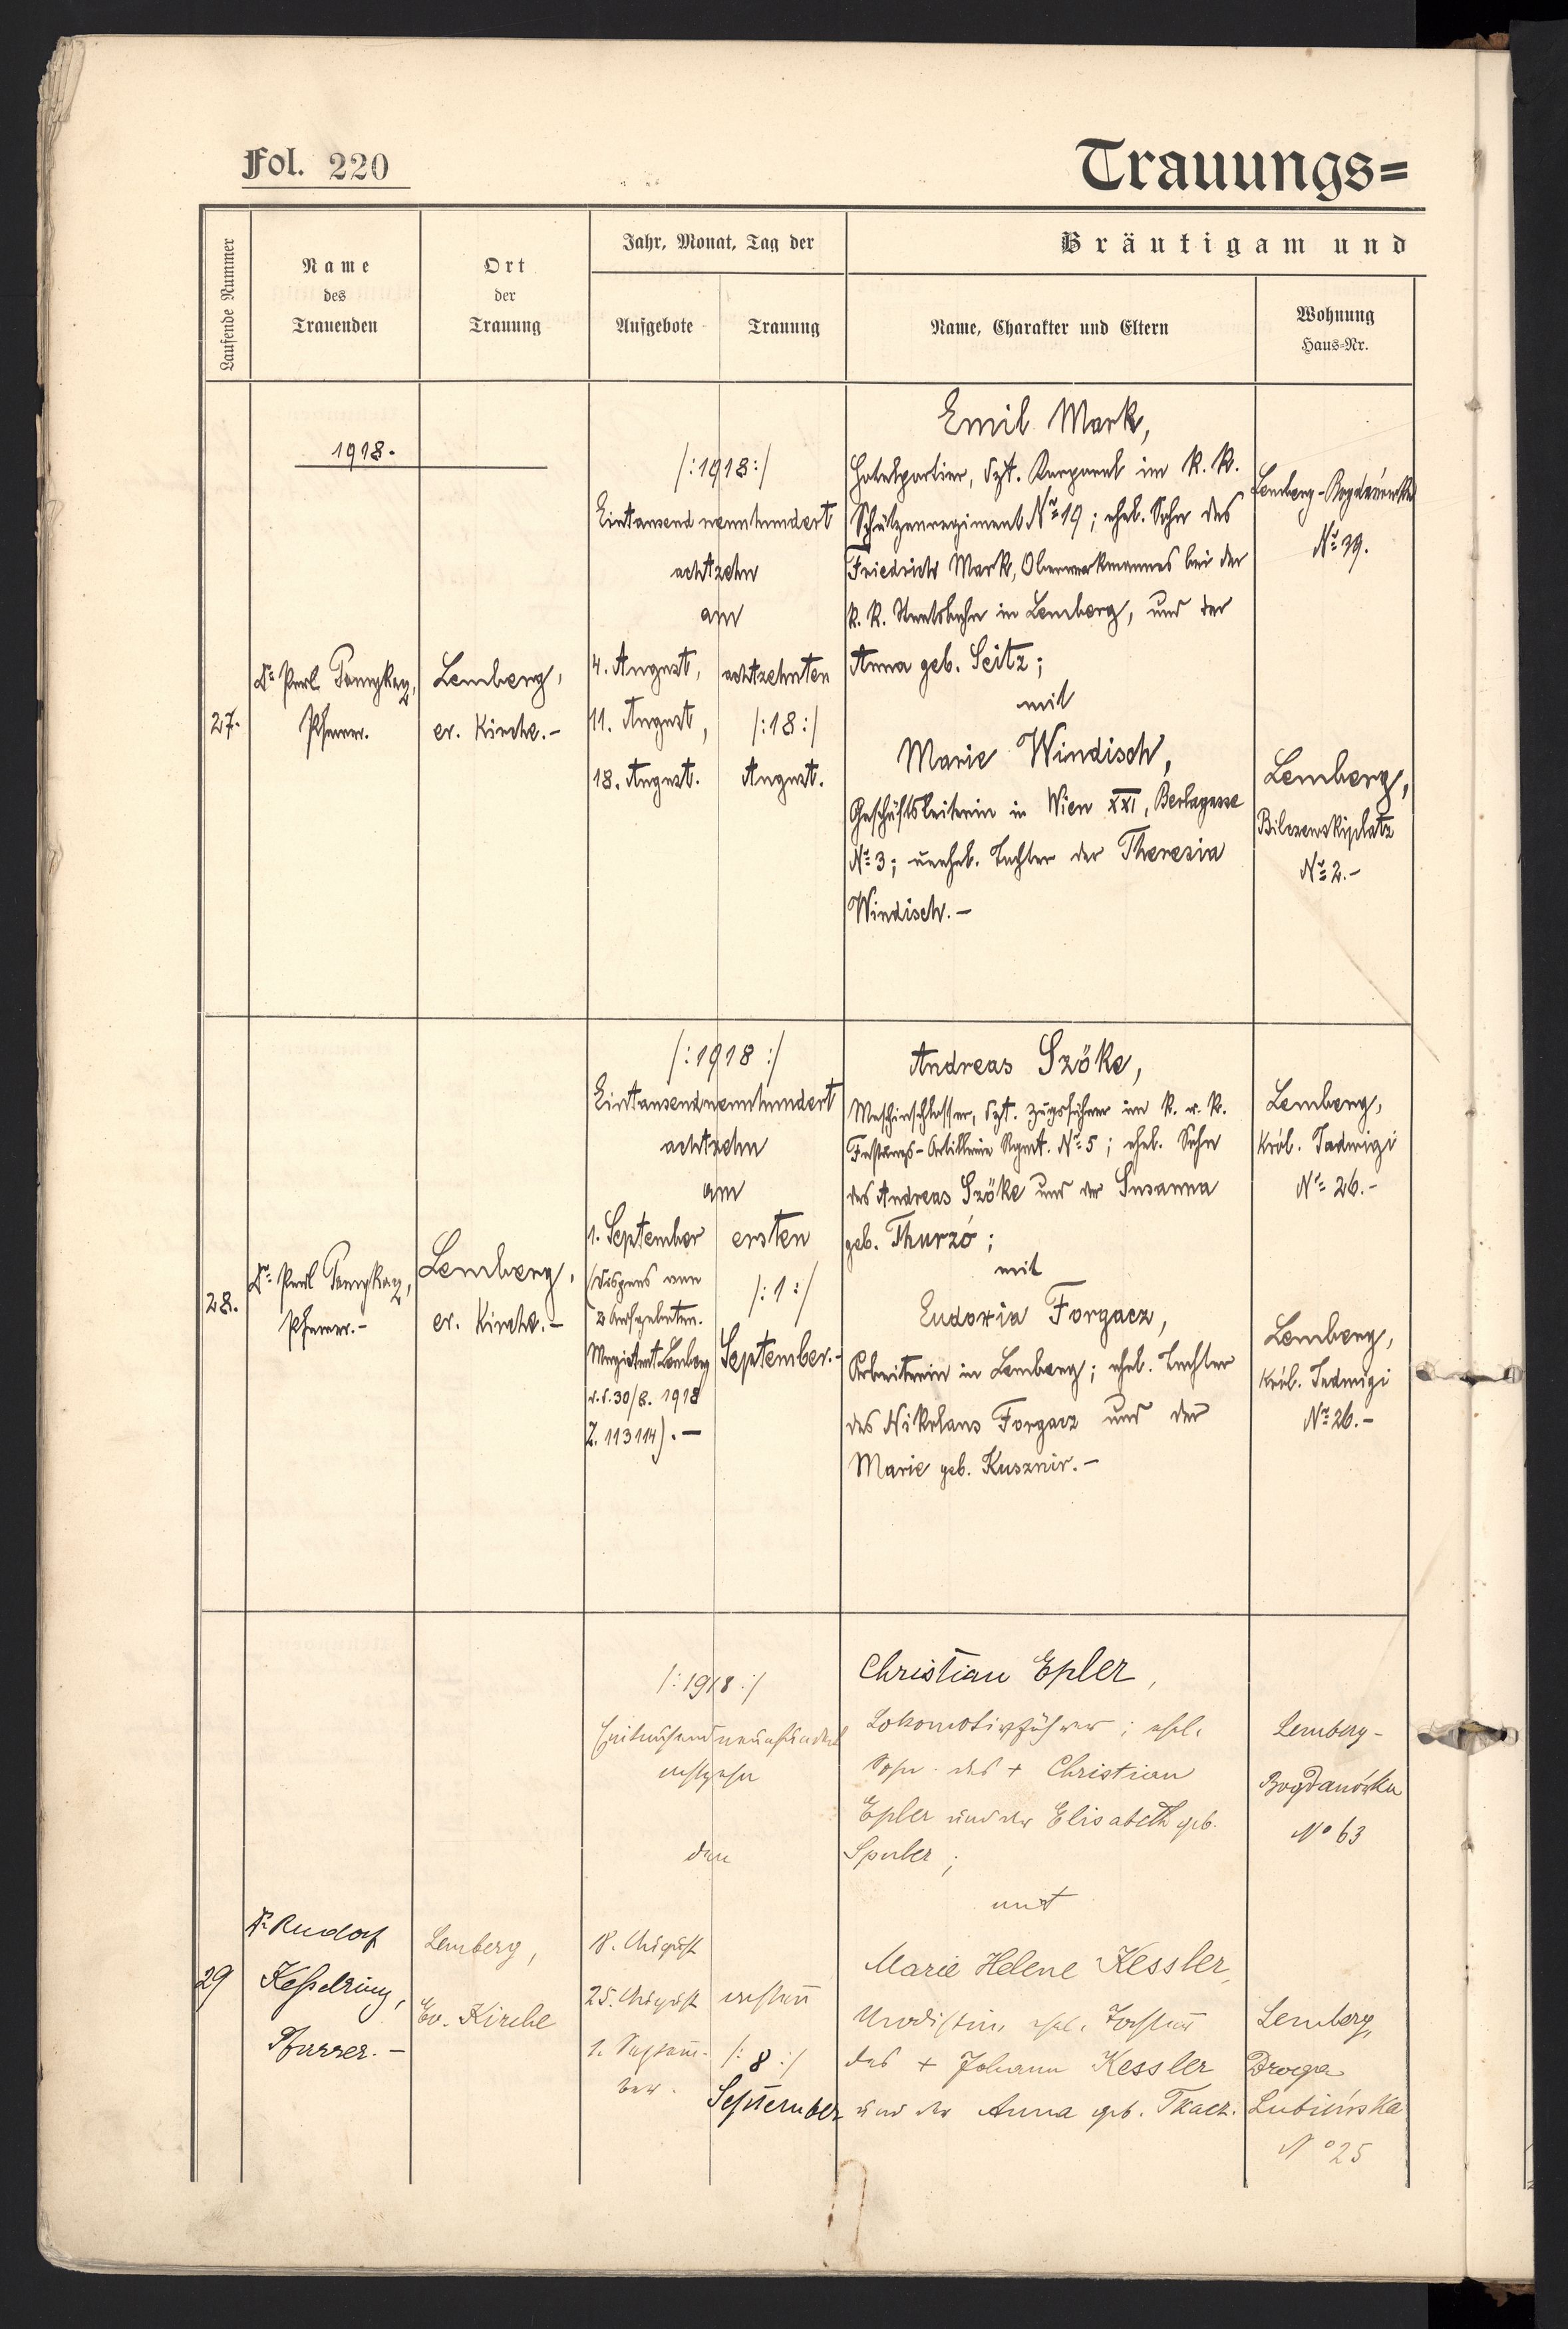 Fol. 220
Trauungs=
Laufende Nummer
Name
des
Trauenden
Ort
der
Trauung
Jahr, Monat, Tag der
Aufgebote
Trauung
Bräutigam und
Name, Charakter und Eltern
Wohnung
Haus=Nr.
1918.
27.
Pfarrer.
Lemberg,
ev. Kirche.-
/:1918:/
Eintausendneunhundert
achtzehn
am
4. August,
11. August,
18. August.
achtzehnten
/:18:/
August.
Emil Mark,
Hotelportier, dzt. Korporal im k. k.
Schützenregiment No 19; ehel. Sohn des
Friedrich Mark, Oberwerkmannes bei der
k. k. Staatsbahn in Lemberg, und der
Anna geb. Seitz;
mit
Marie Windisch,
Geschäftsleiterin in Wien XXI,
No 3; unehel. Tochter der Theresia
Windisch.-
Lemberg-Bogdanówka
No 39.
Lemberg,
Bilczewskiplatz
No 2.-
28.
Pfarrer.-
Lemberg,
ev. Kirche.-
/:1918:/
Eintausendneunhundert
achtzehn
am
1. September
(Dispens von
2 Aufgeboten.
Magistrat Lemberg
v. 30/8. 1918
Z. 113114).-
ersten
/:1:/
September.-
Andreas Szöke,
Maschinschlosser, dzt. Zugsführer im k. u. k.
Festungs-Artillerie Regmt. No 5; ehel. Sohn
des Andreas Szöke und der Susanna
geb. Thurzó;
mit
Eudoxia Forgacz,
Arbeiterin in Lemberg; ehel. Tochter
des Nikolaus Forgacz und der
Marie geb. Kusznir.-
Lemberg,
Król. Jadwigi
No 26.-
Lemberg,
Król. Jadwigi
No 26.-
29
Dr Rudolf
Kesselring,
Pfarrer.-
Lemberg,
Ev. Kirche
/:1918:/
Eintausendneunhundert
achtzehn
den
18. August
25. August
1. Septem-
ber.
achten
/:8:/
September
Christian Epler,
Lokomotivführer; ehel.
Sohn des + Christian
Epler und der Elisabeth geb.
Spuler;
mit
Marie Helene Kessler,
Modistin, ehel. Tochter
des + Johann Kessler
und der Anna geb. Tkacz.
Lemberg-
Bogdanówka
No 63
Lemberg,
Droga
Lubieńska
No 25